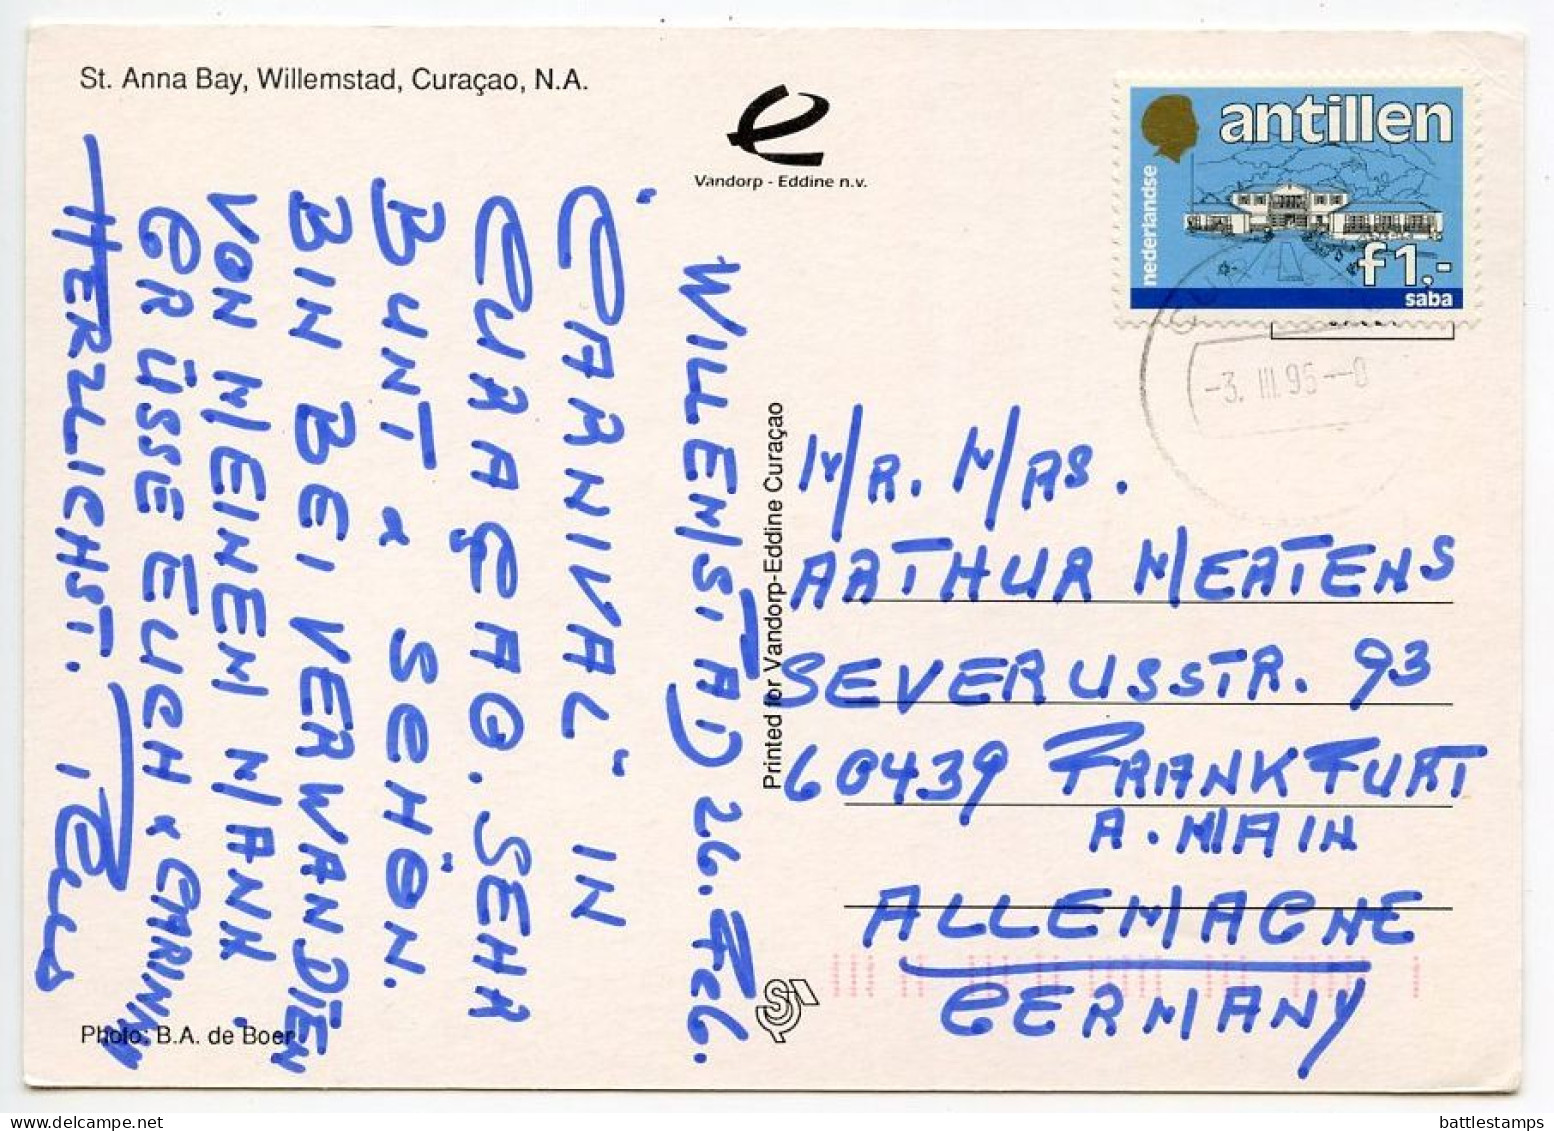 St. Anna Bay, Willemstad, Curaçao, N.A.
Vandorp - Eddine n.v.
nederlandse
antillen
f1.-
saba
-3. III.96--8
WILLEMSTAD 26. Feb.
"CARNIVAL" IN
CURAÇAO. SEHR
BUNT & SCHÖN.
BIN BEI VERWANDTEN
VON MEINEM MANN.
GRÜSSE EUCH &
HERZLICHST.
Printed for Vandorp-Eddine Curaçao
MR. MRS.
ARTHUR MERTENS
SEVERUSSTR. 93
60439 FRANKFURT
A. MAIN
ALLEMAGNE
GERMANY
Photo: B.A. de Boer
battlestamps